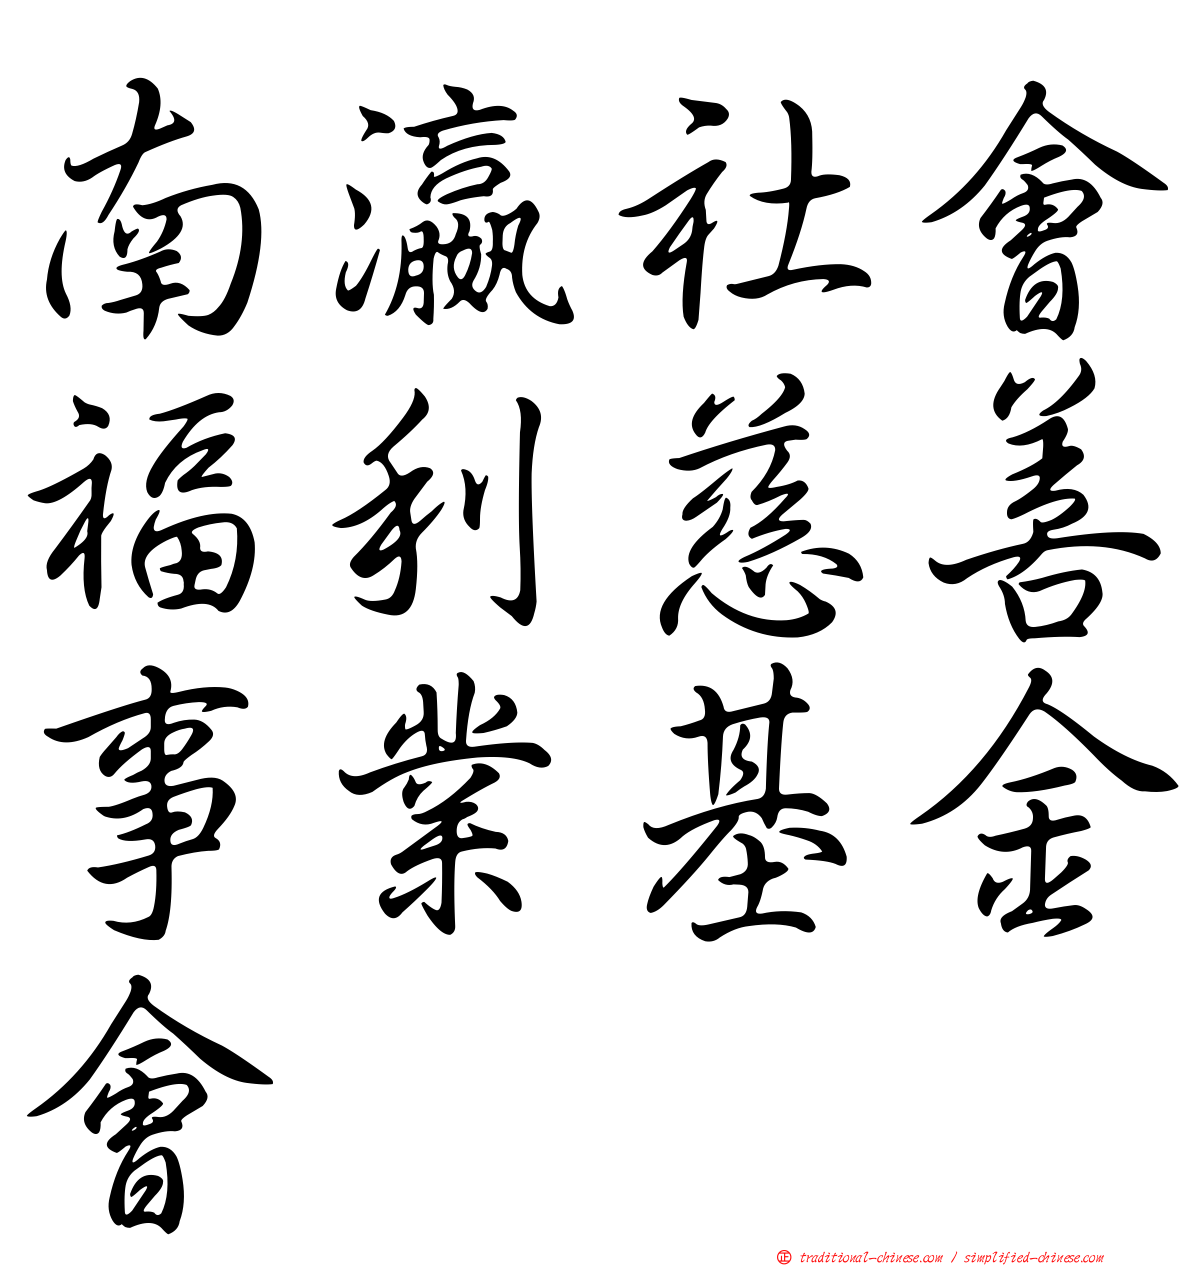 南瀛社會
福利慈善
事業基金
會
㊣ traditional-chinese.com / simplified-chinese.com